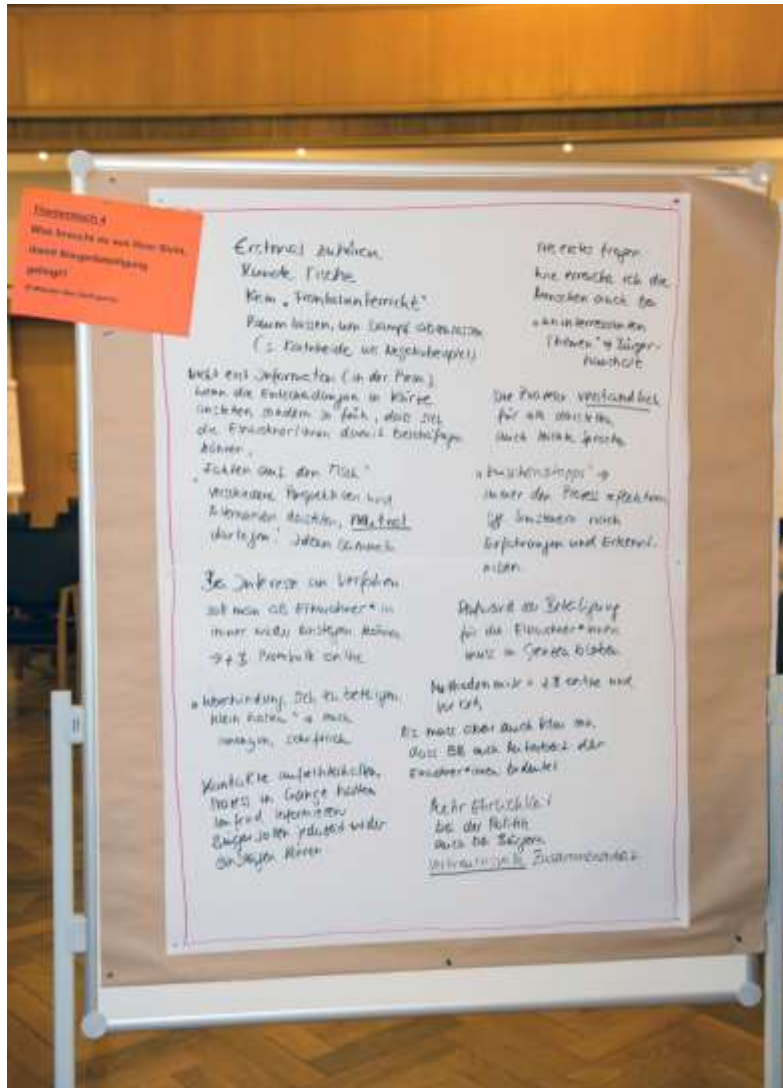 Thementisch 4
Was braucht es aus Ihrer Sicht,
damit Bürgerbeteiligung
gelingt?
Erstmal zuhören
Runde Tische
Kein „Frontalunterricht"
Raum lassen, um Dampf abzulassen
(= als Negativbeispiel)
Nicht erst Information (in der
wenn die Entscheidungen in Kürze
anstehen sondern so früh, dass sich
die Einwohner/innen damit beschäftigen
können.
„Fakten auf den Tisch"
verschiedene Perspektiven und
Alternativen darstellen, neutral
darlegen. Ideen sammeln
Bei Interesse an Verfahren
soll man als Einwohner*in
immer wieder einsteigen können
→ z.B. online
„ sich zu beteiligen
klein halten" → auch
anonym, schriftlich
Kontakte aufrechterhalten,
Prozess in Gange halten
laufend informieren
Bürger sollen jederzeit wieder
einsteigen können
fragen
Wie erreiche ich die
Menschen auch bei
„uninteressanten
Themen" → Bürger-
haushalt
Die Prozesse verständlich
für alle
auch leichte Sprache
„Zwischenstopps" →
immer den Prozess reflektieren
nach
Erfahrungen und Erkennt-
nissen
Aufwand der Beteiligung
für die Einwohner*innen
muss in Grenzen bleiben
Methodenmix = z.B. online und
vor Ort
Es muss aber auch klar sein,
dass BB auch der
Einwohner*innen bedeutet
Mehr Ehrlichkeit
bei der Politik
auch bei Bürgern
vertrauensvolle Zusammenarbeit